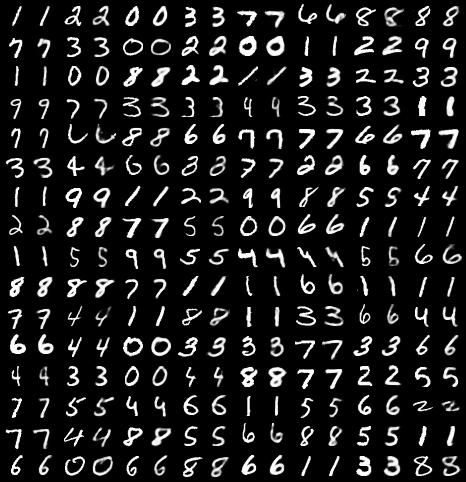 1 1 2 2 0 0 3 3 7 7 6 6 8 8 8 8
7 7 3 3 0 0 2 2 0 0 1 1 2 2 9 9
1 1 0 0 8 8 2 2 1 1 3 3 2 2 3 3
9 9 7 7 3 3 3 3 4 4 3 3 3 3 1 1
7 7 6 6 8 8 6 6 7 7 7 7 6 6 7 7
3 3 4 4 6 6 8 8 7 7 2 2 6 6 7 7
1 1 9 9 1 1 2 2 9 9 8 8 5 5 4 4
2 2 8 8 7 7 5 5 0 0 6 6 1 1 1 1
1 1 5 5 9 9 5 5 4 4 4 4 5 5 6 6
8 8 8 8 7 7 1 1 1 1 6 6 1 1 1 1
7 7 4 4 1 1 8 8 1 1 3 3 6 6 4 4
6 6 4 4 0 0 3 3 3 3 7 7 3 3 6 6
4 4 3 3 0 0 4 4 8 8 7 7 2 2 5 5
7 7 5 5 4 4 6 6 1 1 5 5 6 6 2 2
7 7 4 4 8 8 5 5 6 6 8 8 5 5 1 1
6 6 0 0 6 6 8 8 6 6 1 1 3 3 8 8